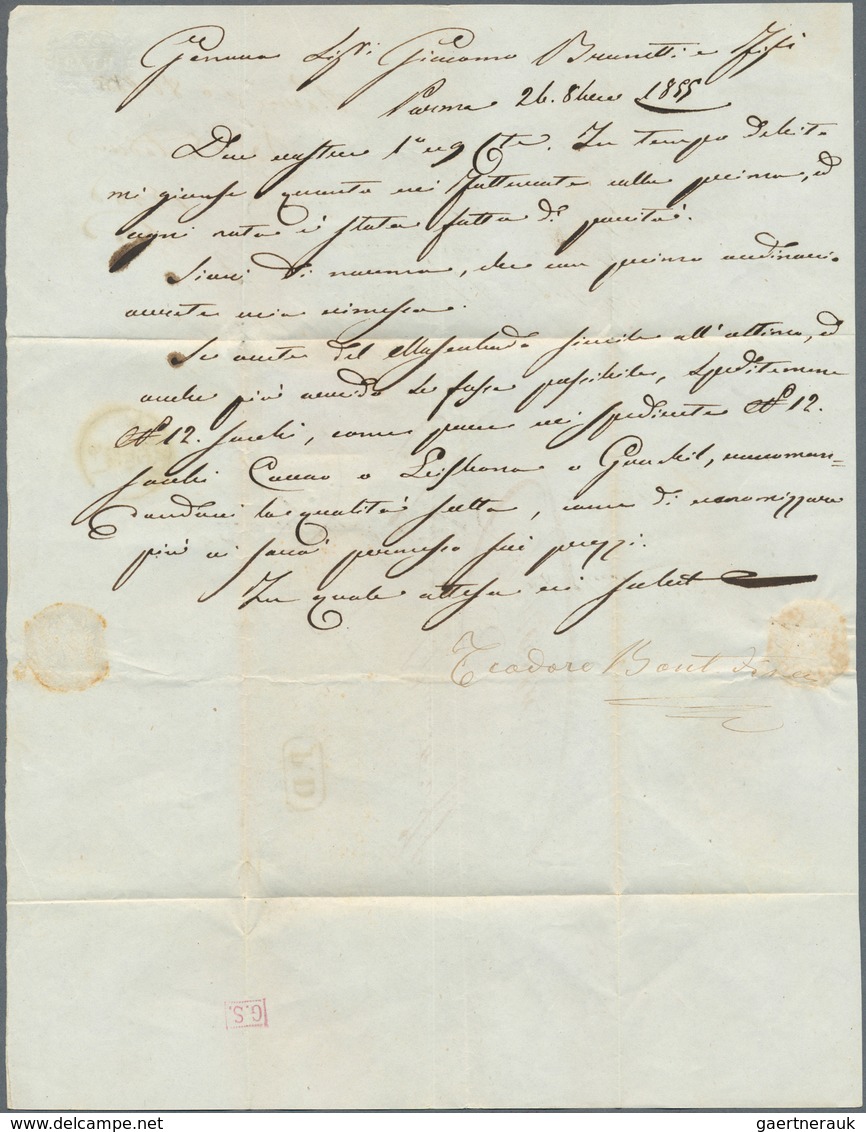 Genova Sig.ri Giacomo Brunetti e Figi
Parma 26. 8bre 1855
Due vostre 1° e 9 Cte. In tempo debito
mi giunse quanto mi fatturaste colla prima, ed
ogni nota è stata fatta di parità.
Siavi di norma, che con primo ordinario
avrete mia rimessa.
Se avete del Mascabado simile all'ultimo, ed
anche più fosse possibile, speditemene
N° 12. sacchi, come pure mi spedirete N° 12.
sacchi Cacao o Lisbona o Guaichil, raccoman=
dandovi la qualità scelta, come di economizzare
più vi sarà permesso sui prezzi.
In quale attesa vi saluto
Teodoro
P.D
G.S.
gaertnerauk